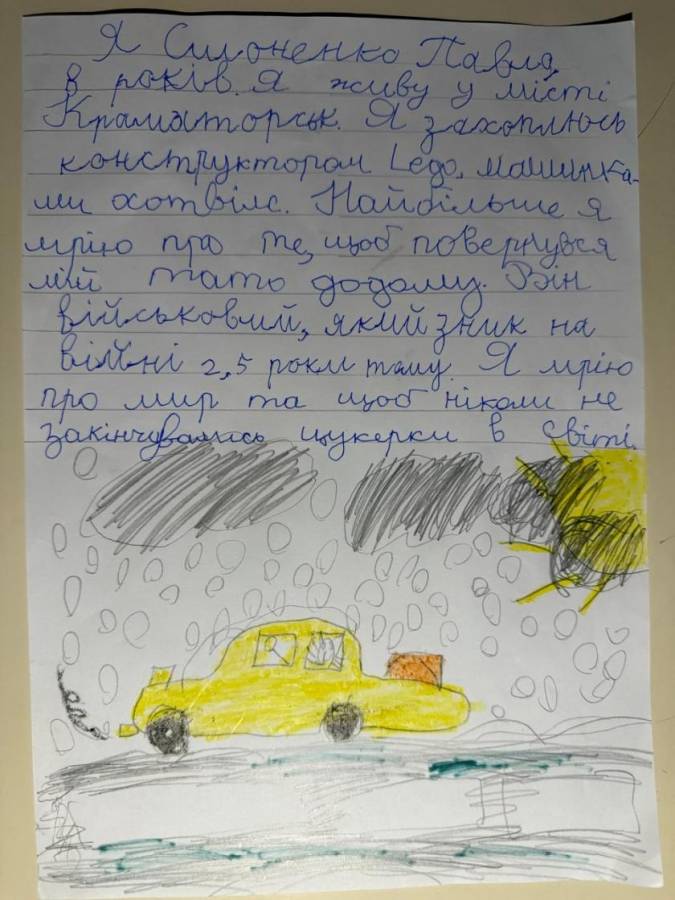 Я Симоненко Павло,
8 років. Я живу у місті
Краматорськ. Я захоплююсь
конструктором Lego, машинка-
ми хотвілс. Найбільше я
мрію про те, щоб повернувся
мій тато додому. Він
військовий, який зник на
війні 2,5 роки тому. Я мрію
про мир та щоб ніколи не
закінчувались цукерки в світі.